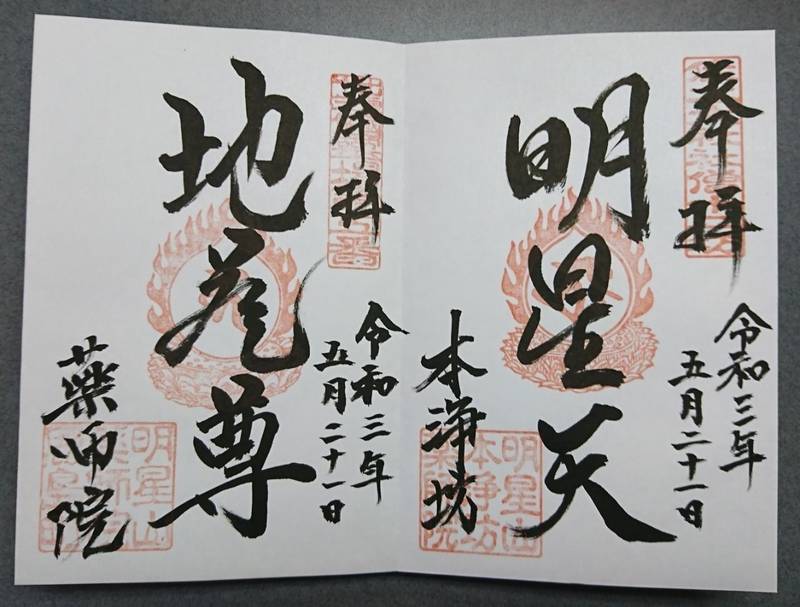 奉拝
明星天
令和三年
五月二十一日
本浄坊
明星山
本浄坊
奉拝
地蔵尊
令和三年
五月二十一日
薬師院
明星山